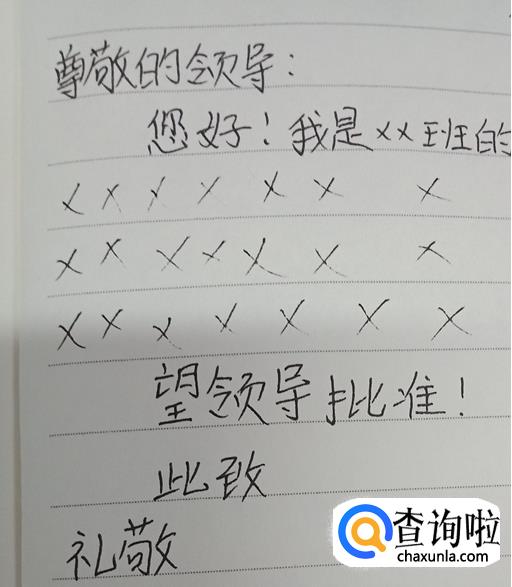 尊敬的领导:
您好!我是xx班的
x x x x x x x
x x x x x x x
x x x x x x x
望领导批准!
此致
礼敬
查询啦
chaxunla.com